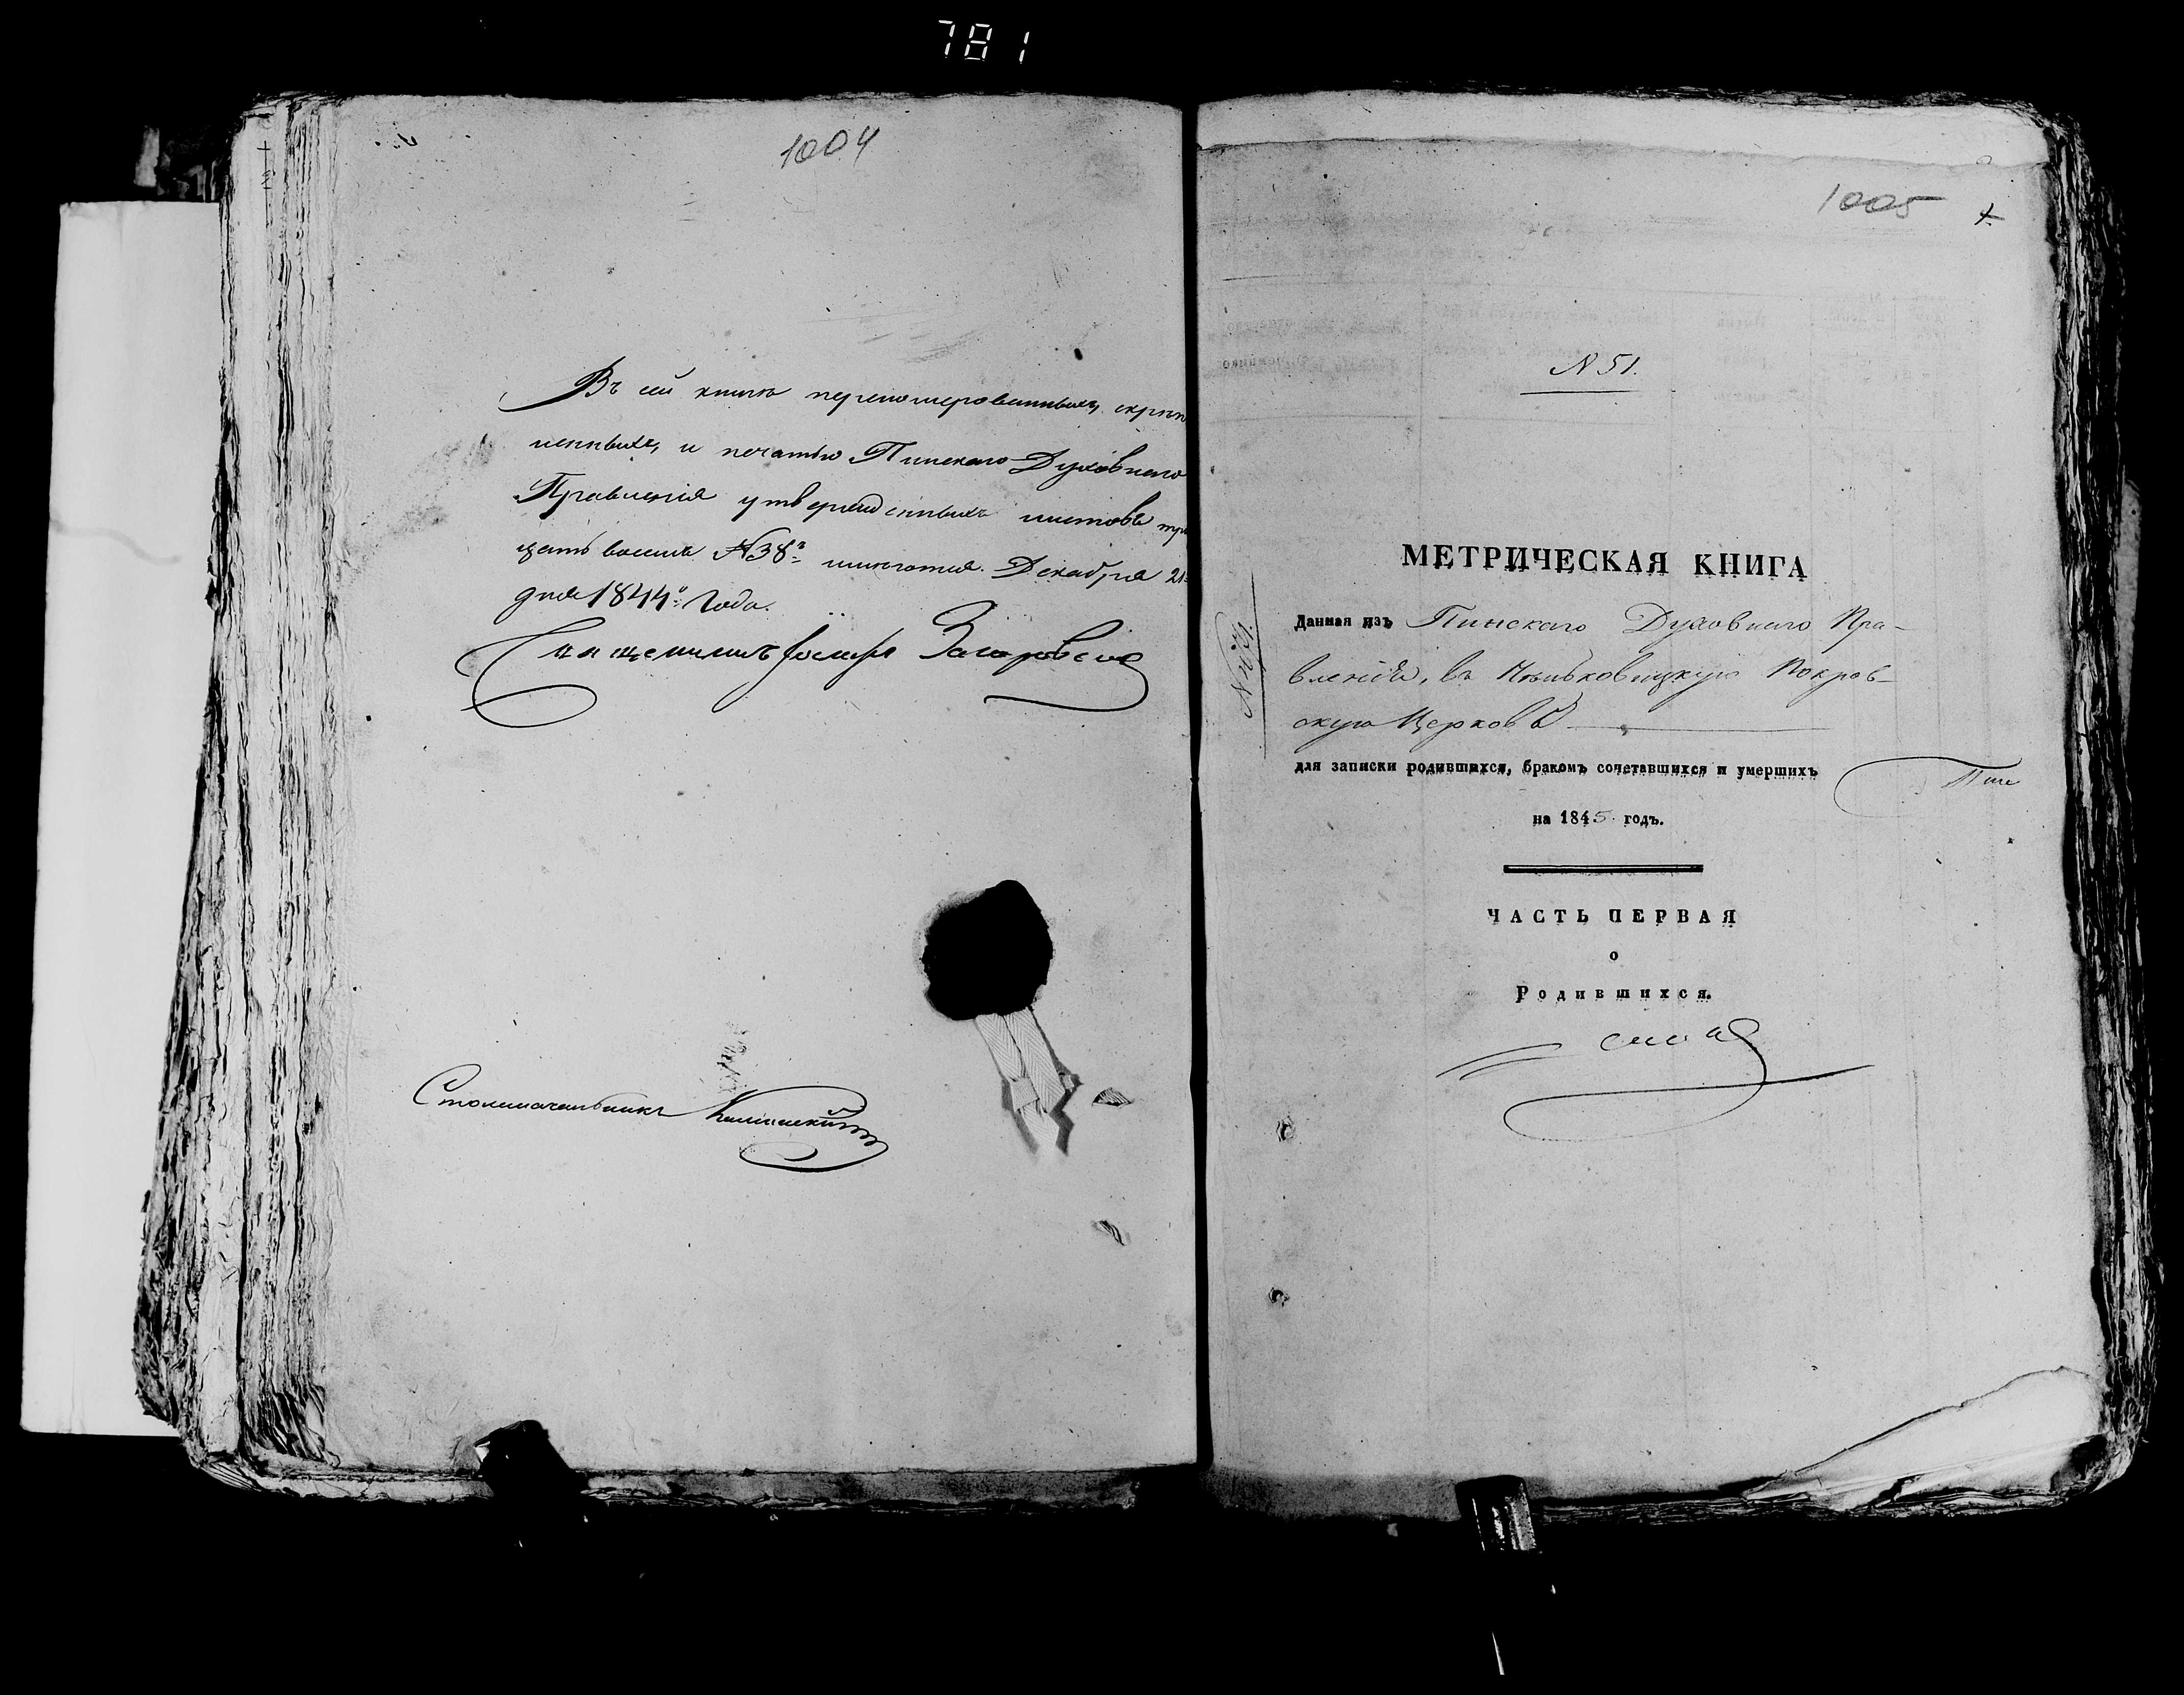 781
1004
Въ сей книгѣ перенумерованныхъ, скрѣп
ленныхъ, и печатью Пинскаго Духовнаго
Правленія утвержденныхъ листовъ три
цать восемь №38: имѣется. Декабря 21
дня 1844 года.
Священникъ
Столоначальникъ
1005
N 51.
МЕТРИЧЕСКАЯ КНИГА
Данная изъ Пинскаго Духовнаго Пра-
вленія, въ Пньковицкую Покров-
скую Церковь
для записки родившихся, бракомъ сочетавшихся и умершихъ
на 1845 годъ.
ЧАСТЬ ПЕРВАЯ
о
Родившихся.